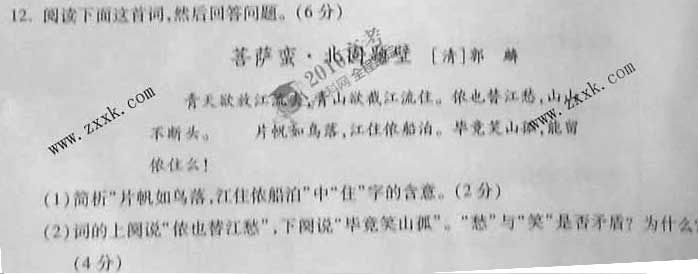 12. 阅读下面这首词,然后回答问题。(6分)
菩萨蛮·北固题壁 [清]郭 麟
青天欲放江流去,青山欲截江流住。侬也替江愁,山山
不断头。 片帆如鸟落,江住侬船泊。毕竟笑山孤,能留
侬住么!
(1)简析“片帆如鸟落,江住侬船泊”中“住”字的含意。(2分)
(2)词的上阕说“侬也替江愁”,下阕说“毕竟笑山孤”。“愁”与“笑”是否矛盾?为什么?
(4分)
www.zxxk.com
2016高考
www.zxxk.com